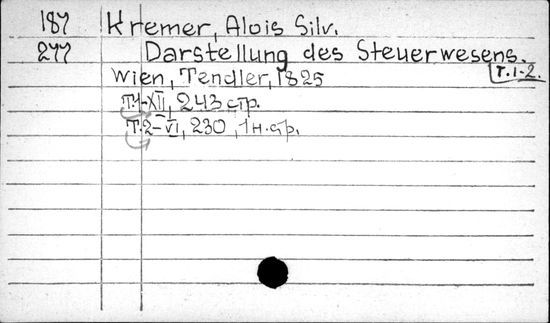 187 Kremer, Alois Silv.
277 Darstellung des Steuerwesens.
Т.1-2.
Wien, Tendler, 1825
Т.1-XII, 243 стр.
Т.2-VI, 230, 1 н.стр.